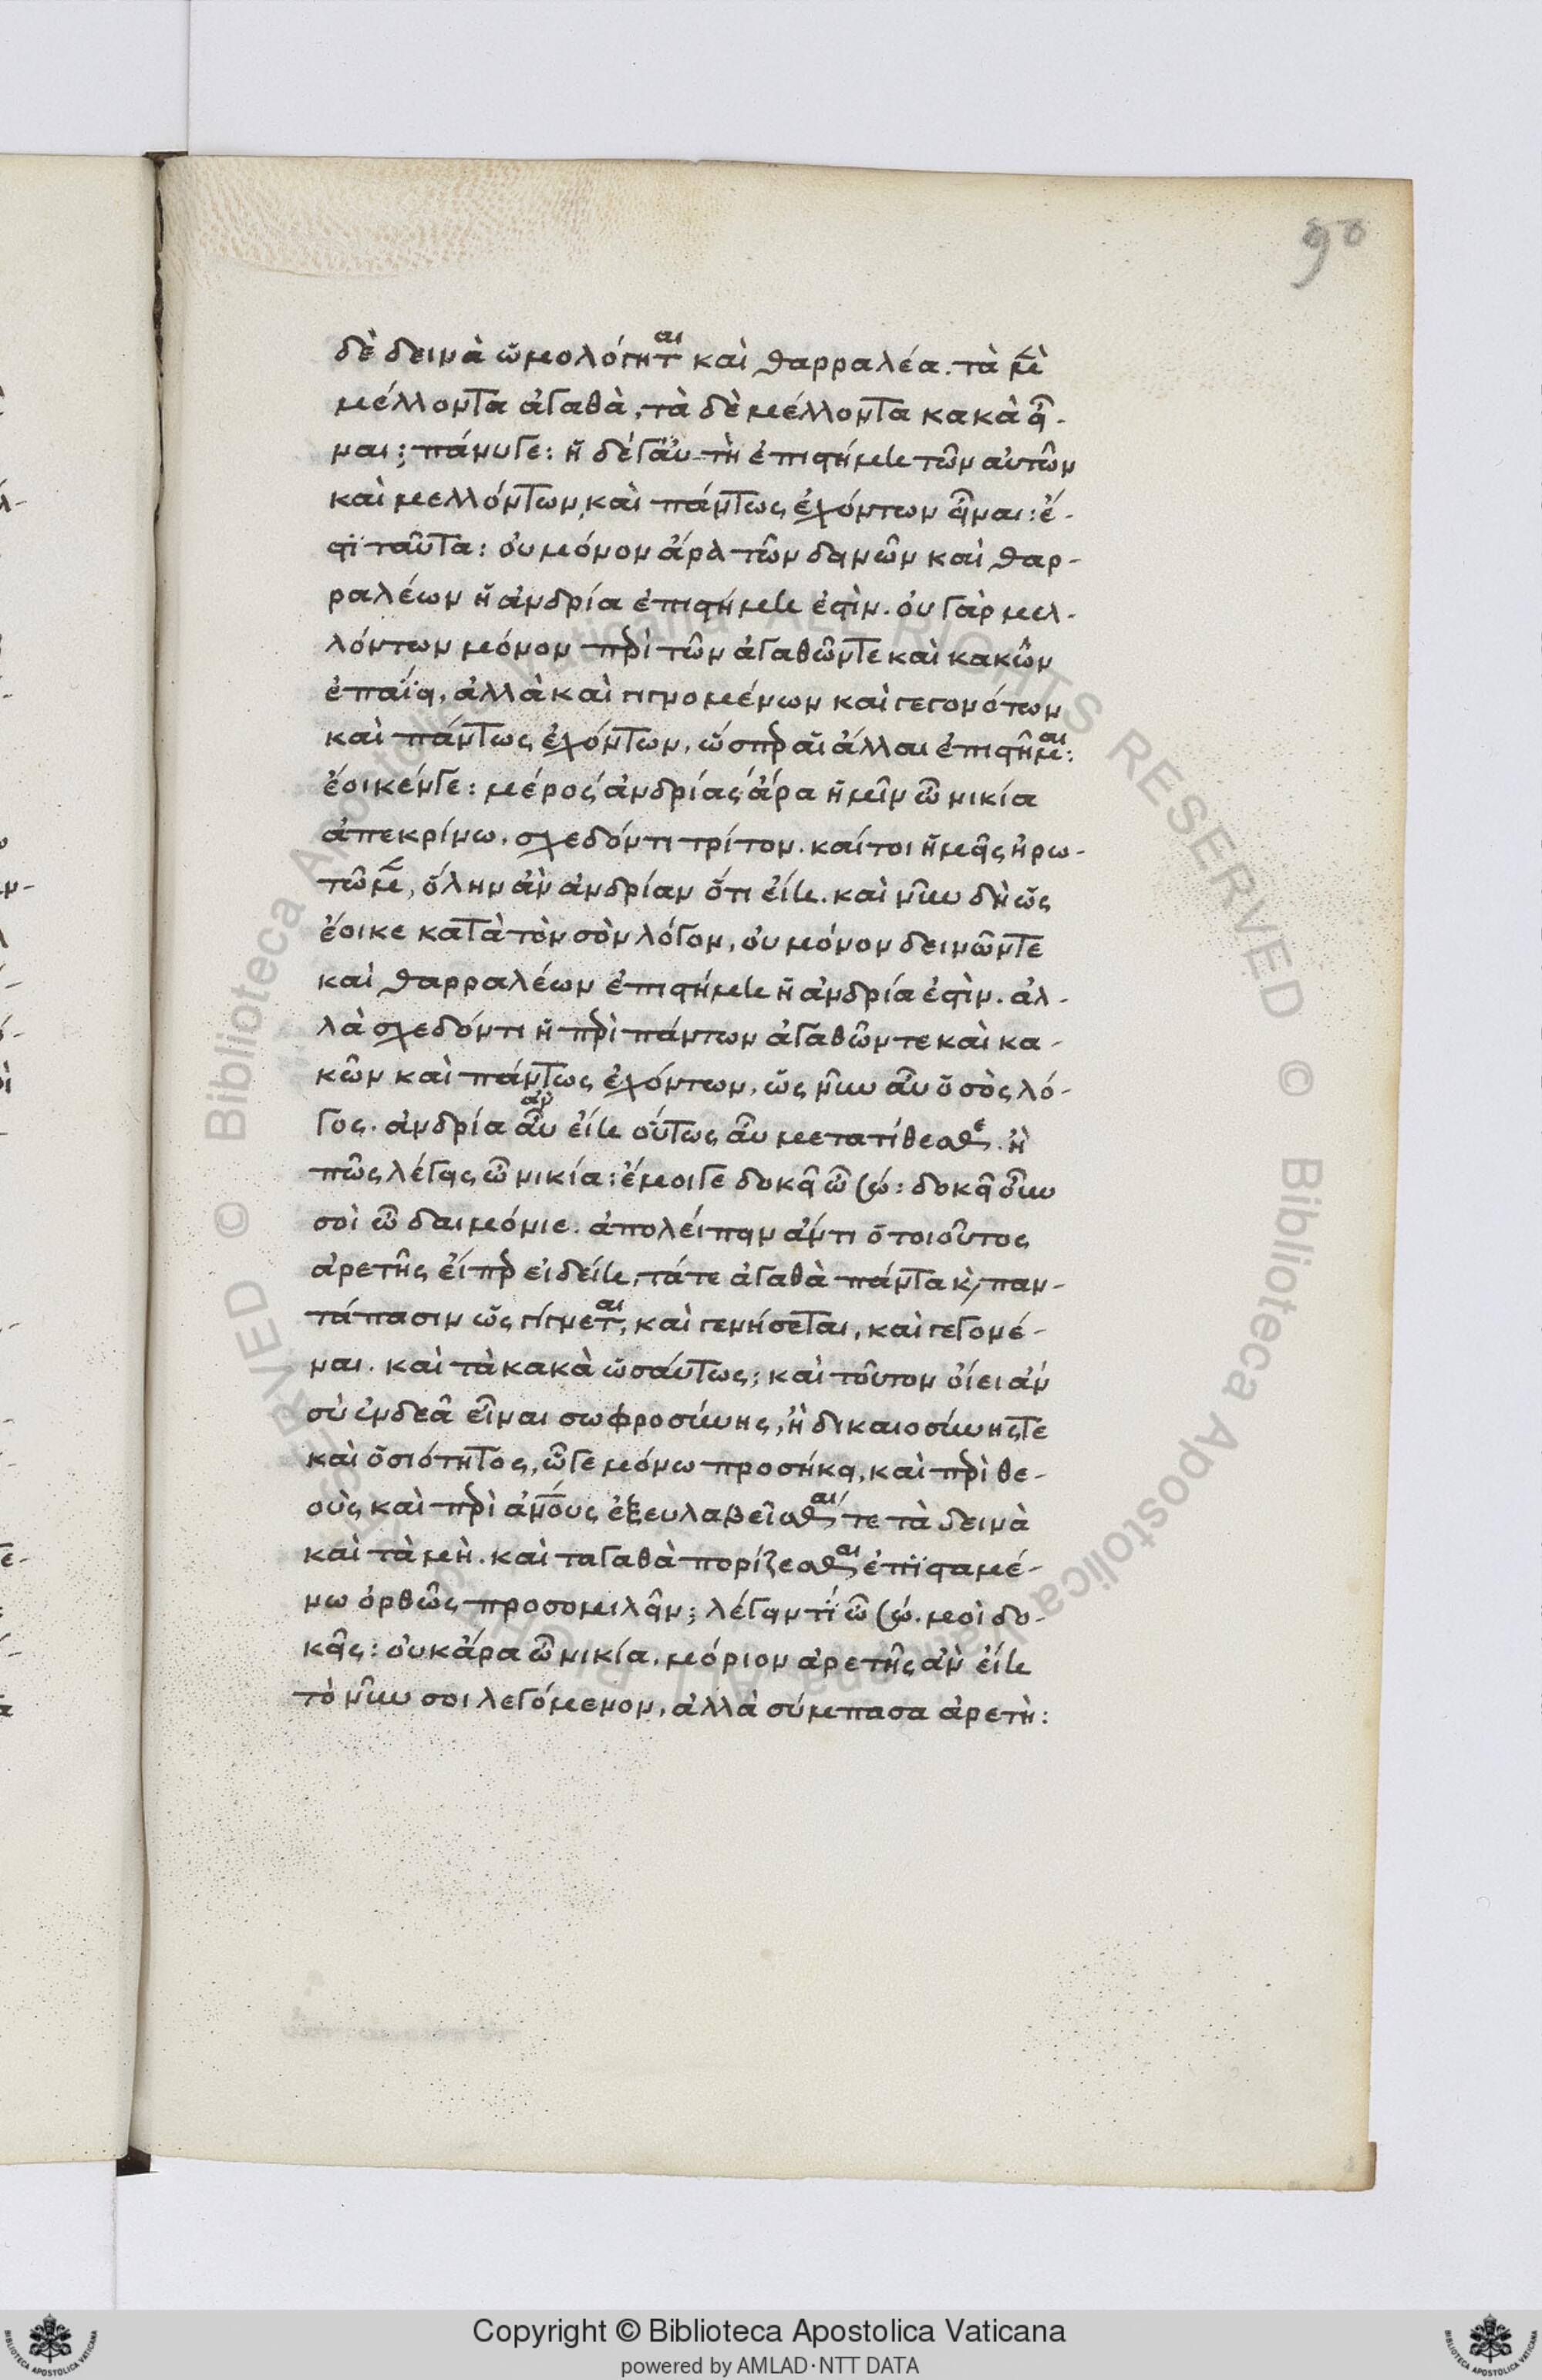 90
δὲ δεινὰ ὡμολόγηται καὶ θαρραλέα. τὰ μὲν
μέλλοντα ἀγαθὰ, τὰ δὲ μέλλοντα κακὰ εἶ-
ναι; πάνυγε: ἡ δέγαὐτὴ ἐπιστήμη τῶν αὐτῶν
καὶ μελλόντων, καὶ πάντως ἐχόντων εἶναι: ἔ-
στι ταῦτα: οὐ μόνον ἄρα τῶν δεινῶν καὶ θαρ-
ραλέων ἡ ἀνδρία ἐπιστήμη ἐστὶν. οὐ γὰρ μελ-
λόντων μόνον περὶ τῶν ἀγαθῶντε καὶ κακῶν
ἐπαΐει, ἀλλὰ καὶ γιγνομένων καὶ γεγονότων
καὶ πάντως ἐχόντων, ὥσπερ αἱ ἄλλαι ἐπιστῆμαι:
ἔοικένγε: μέρος ἀνδρίας ἄρα ἡμῖν ὦ νικία
ἀπεκρίνω. σχεδόντι τρίτον. καίτοι ἡμεῖς ἠρω-
τῶμεν, ὅλην ἀν ἀνδρίαν ὅτι εἴη. καὶ νῦν δὴ ὡς
ἔοικε κατὰ τὸν σὸν λόγον, οὐ μόνον δεινῶντε
καὶ θαρραλέων ἐπιστήμη ἡ ἀνδρία ἐστὶν. ἀλ-
λὰ σχεδόντι ἡ περὶ πάντων ἀγαθῶντε καὶ κα-
κῶν καὶ πάντως ἐχόντων, ὡς νῦν αὖ ὁ σὸς λό-
γος. ἀνδρία αὖ ἂν εἴη οὕτως αὖ μετατίθεσθε. ἢ
πῶς λέγεις ὦ νικία: ἔμοιγε δοκεῖ ὦ σώ: δοκεῖ οὖν
σοὶ ὦ δαιμόνιε. ἀπολείπειν ἄντι ὁ τοιοῦτος
ἀρετῆς εἴπερ εἰδείη, τάτε ἀγαθὰ πάντα καὶ παν-
τάπασιν ὡς γίγνεται, καὶ γενήσεται, καὶ γεγονέ-
ναι. καὶ τὰ κακὰ ὡσαύτως; καὶ τοῦτον οἴει ἀν
σὺ ἐνδεᾶ εἶναι σωφροσύνης, ἢ δικαιοσύνηςτε
καὶ ὁσιότητος, ᾧγε μόνω προσήκει, καὶ περὶ θε-
οὺς καὶ περὶ ἀνους ἐξευλαβεῖσθαι τε τὰ δεινὰ
καὶ τὰ μὴ. καὶ ταγαθὰ πορίζεσθαι ἐπισταμέ-
νω ὀρθῶς προσομιλεῖν; λέγειν τὶ ὦ σώ. μοὶ δο-
κεῖς: οὐκάρα ὦ νικία, μόριον ἀρετῆς ἀν εἴη
τὸ νῦν σοι λεγόμενον, ἀλλὰ σύμπασα ἀρετὴ:
Copyright © Biblioteca Apostolica Vaticana
powered by AMLAD·NTT DATA